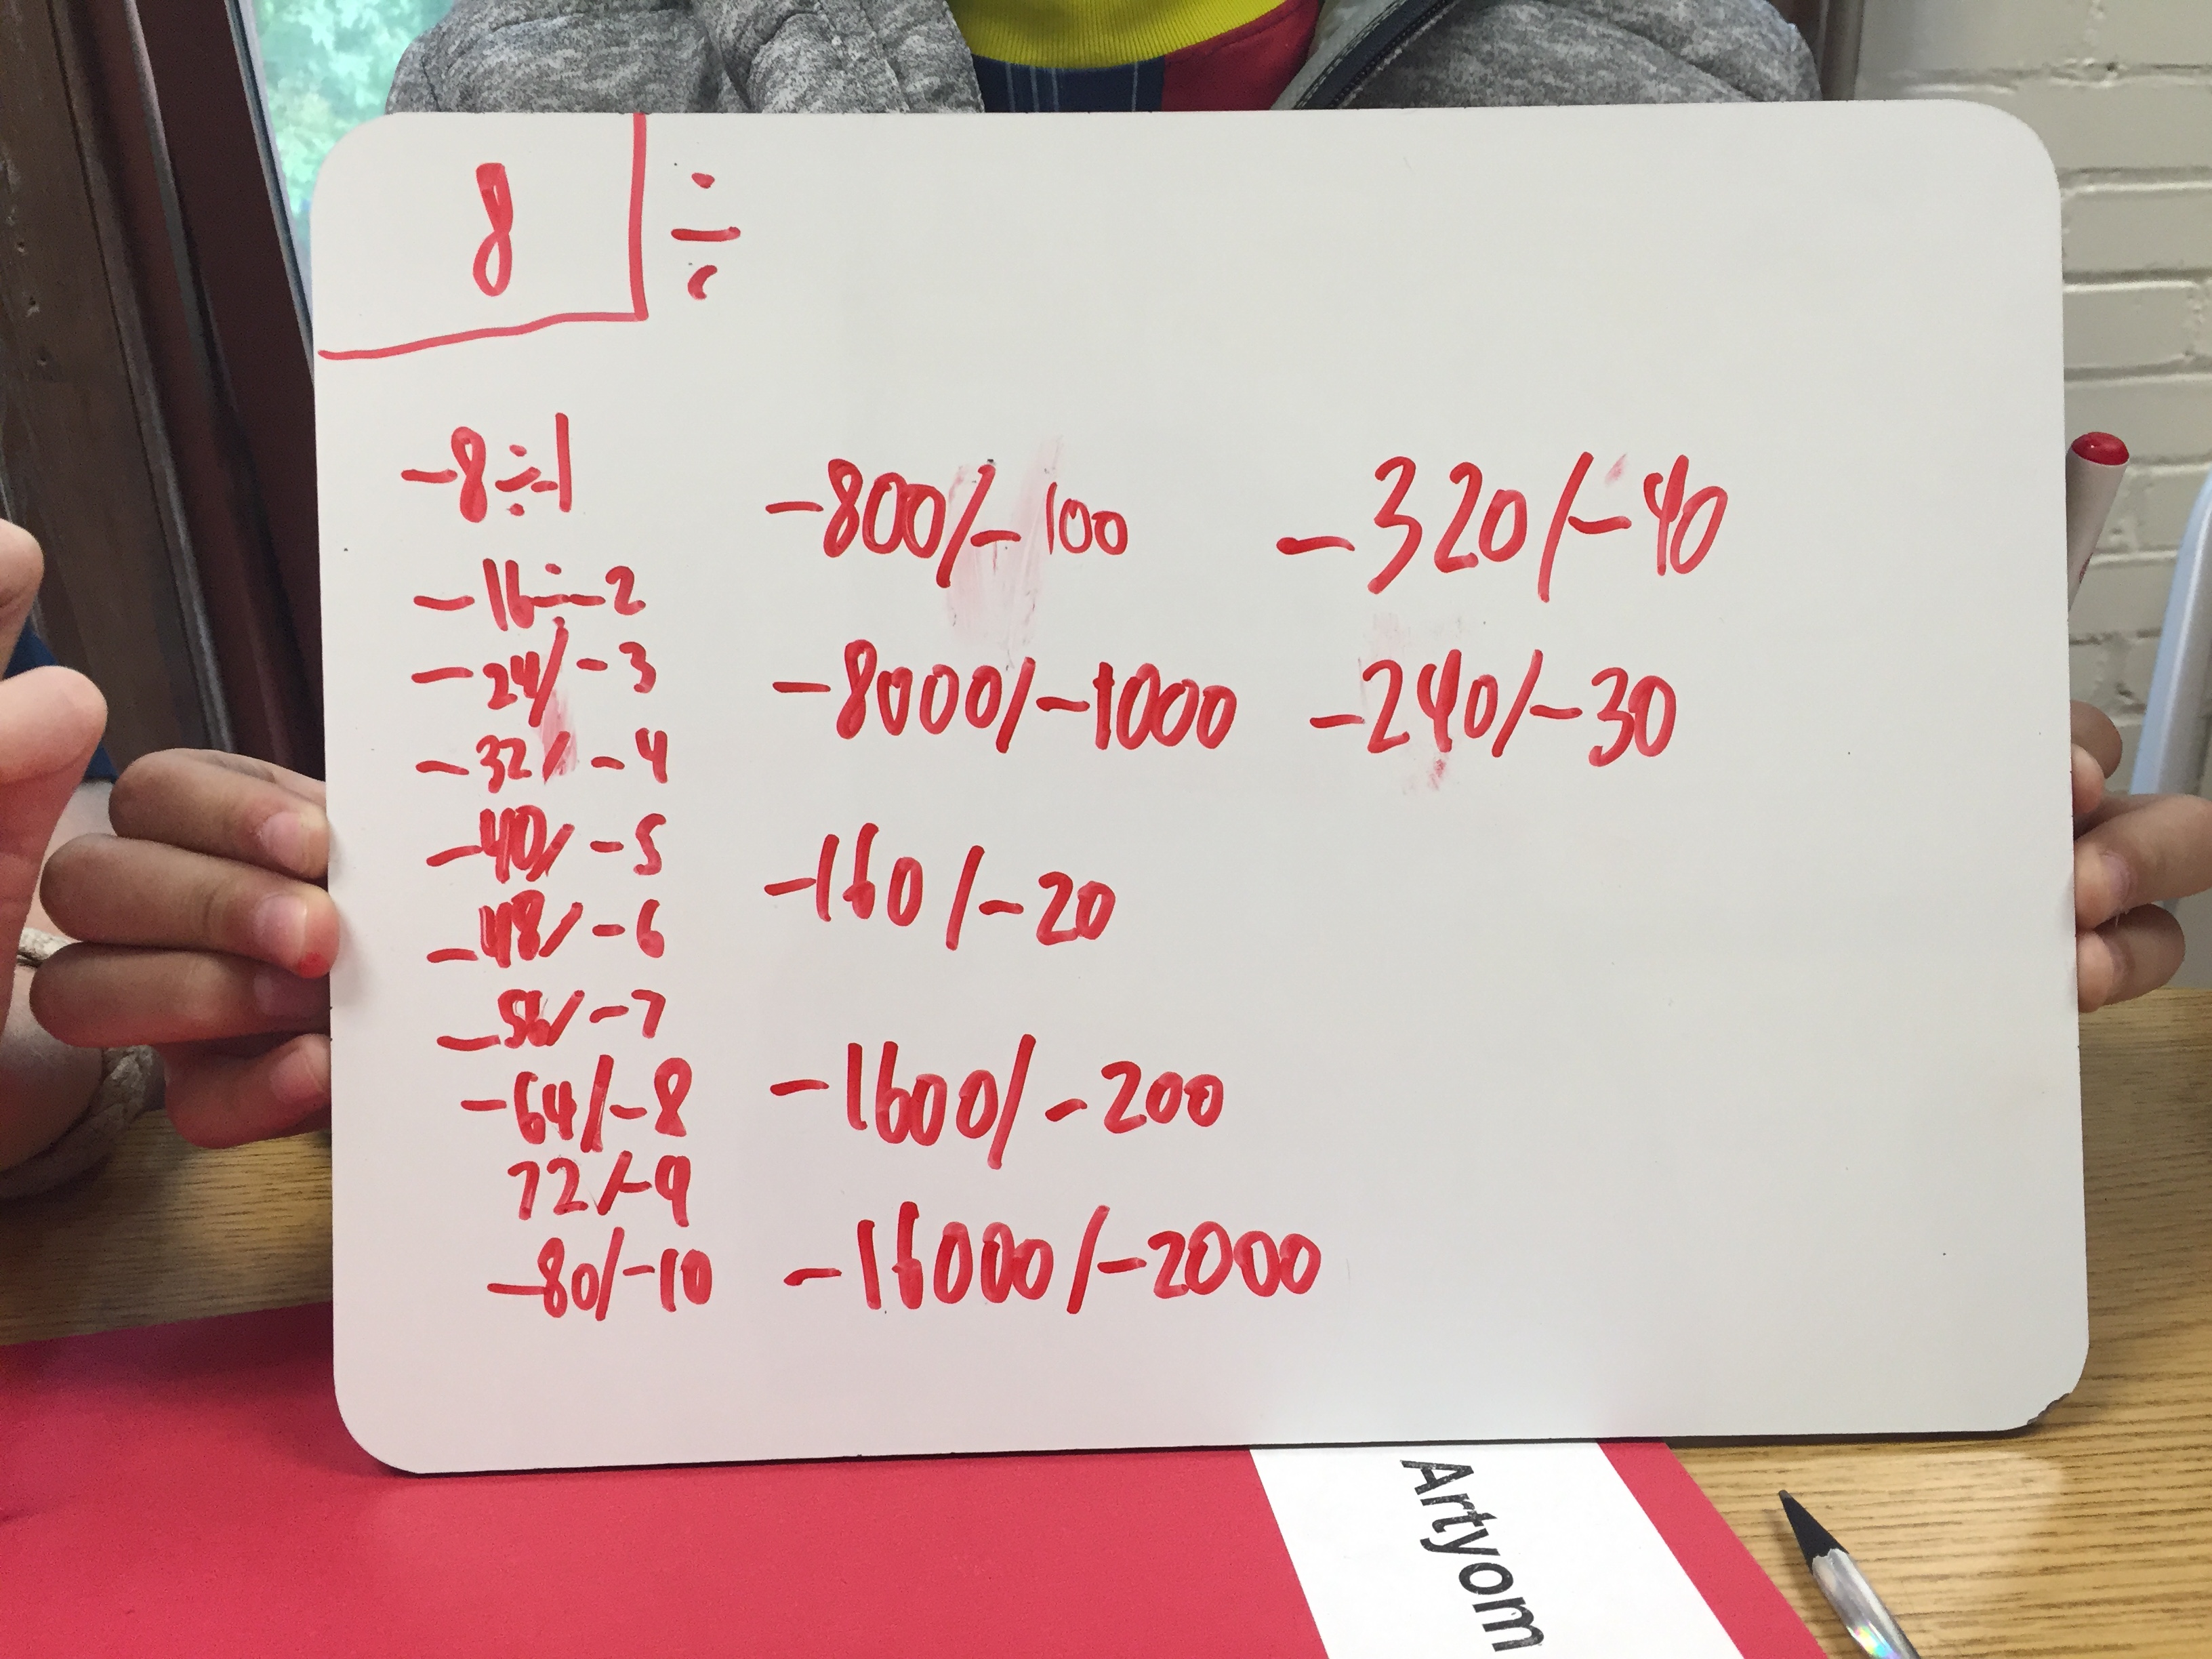 8 ÷
-8÷-1
-16÷-2
-24/-3
-32/-4
-40/-5
-48/-6
-56/-7
-64/-8
72/-9
-80/-10
-800/-100
-8000/-1000
-160/-20
-1600/-200
-16000/-2000
-320/-40
-240/-30
Artyom